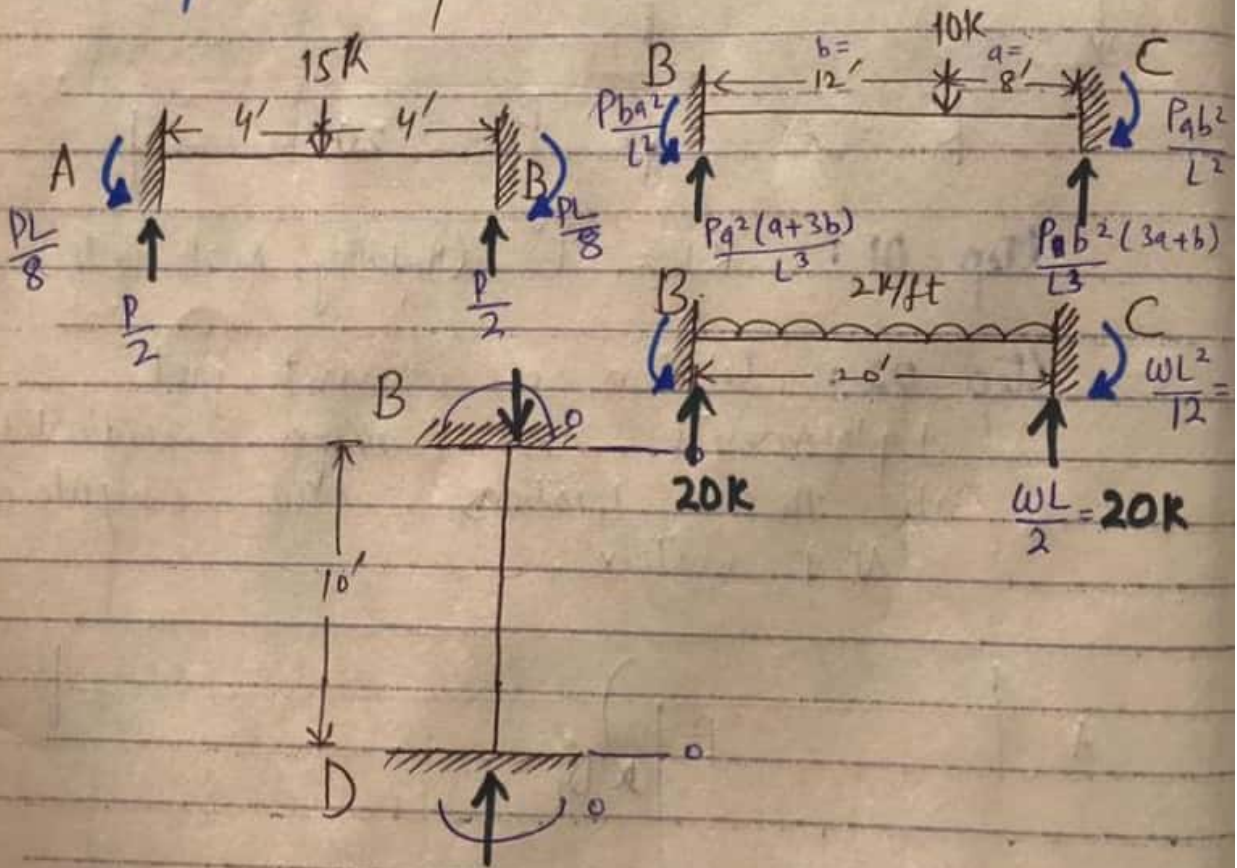 15K
4'
4'
A
B
PL/8
PL/8
P/2
P/2
10K
b=
a=
12'
8'
B
C
Pba²/L²
Pab²/L²
Pa²(a+3b)/L³
Pab²(3a+b)/L³
2K/ft
B
C
20'
ωL²/12=
20K
ωL/2=20K
B
0
0
10'
D
0
0